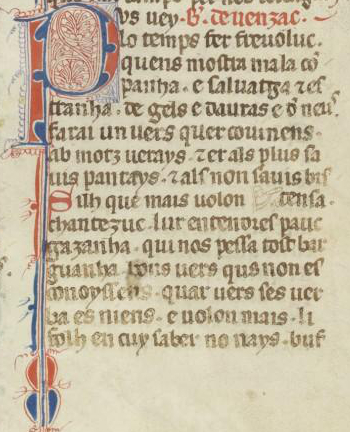 us uey. G. de uenzac.
lo temps fer freuoluc.
quens mostra mala cõ
panha. e saluatga ⁊ es
tranha. de gels e dauras e õ neu.
farai un uers quer couinens.
ab motz uerays. ⁊ er als plus sa
uis pan tays. ⁊ als non sauis bis
Silh que mais uolon tensa.
chantez uc. lur entendres pauc
gazanha. qui nos pessa tost bar
guanha. bons uers quis non es
conoyssens. quar uers ses uer
ba es niens. e uolon mais. li
folh en cuy saber no nays. buf